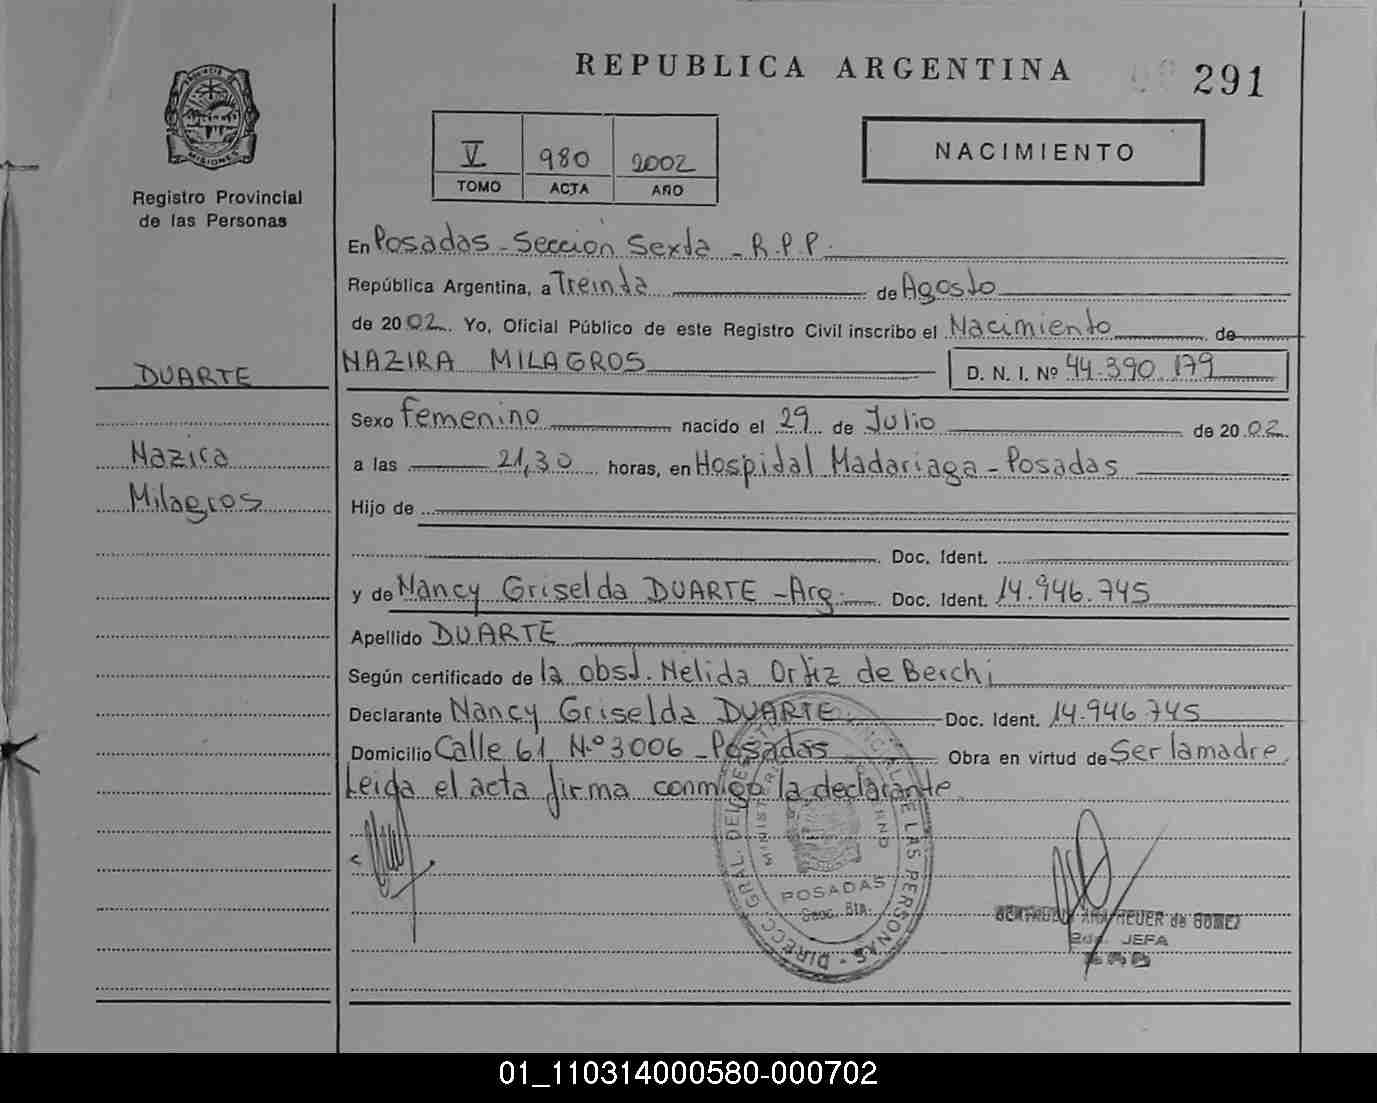 REPUBLICA ARGENTINA
291
MISIONES
Registro Provincial
de las Personas
V 980 2002
TOMO ACTA AÑO
NACIMIENTO
En Posadas - Sección Sexta - R.P.P.
República Argentina, a Treinta de Agosto
de 2002. Yo, Oficial Público de este Registro Civil inscribo el Nacimiento de
DUARTE
NAZIRA MILAGROS D. N. I. Nº 44.390.179
Sexo Femenino nacido el 29 de Julio de 2002
Nazira
a las 21,30 horas, en Hospital Madariaga - Posadas
Milagros
Hijo de
Doc. Ident.
y de Nancy Griselda DUARTE - Arg. Doc. Ident. 14.946.745
Apellido DUARTE
Según certificado de la obst. Nelida Ortiz de Berchi
Declarante Nancy Griselda DUARTE Doc. Ident. 14.946.745
Domicilio Calle 61 N.º 3006 - Posadas Obra en virtud de Ser la madre.
Leida el acta firma conmigo la declarante
DIRECC. GRAL. DE LAS PERSONAS
POSADAS
Secc. 6ta.
HEUER de GOMEZ
2da. JEFA
01_110314000580-000702